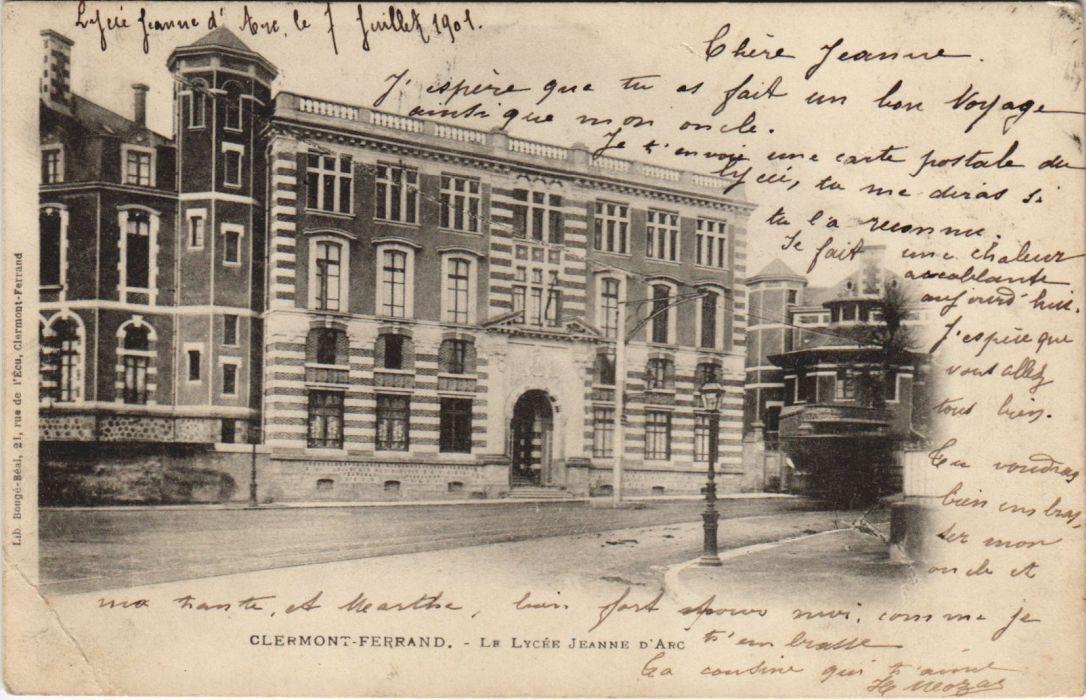 Lycée Jeanne d'Arc, le 7 Juillet 1901.
Chère Jeanne.
J'espère que tu as fait un bon voyage
ainsi que mon oncle.
Je t'envoie une carte postale du
lycée, tu me diras si
tu l'a reconnu.
Il fait une chaleur
accablante
aujourd'hui.
J'espère que
vous allez
tous bien.
Tu voudras
bien embras,
ser mon
oncle et
ma tante, et Marthe, bien fort pour moi, comme je
t'embrasse
Ta cousine qui t'aime
CLERMONT-FERRAND. - LE LYCÉE JEANNE D'ARC
Lib. Bougé-Béal, 21, rue de l'Écu, Clermont-Ferrand